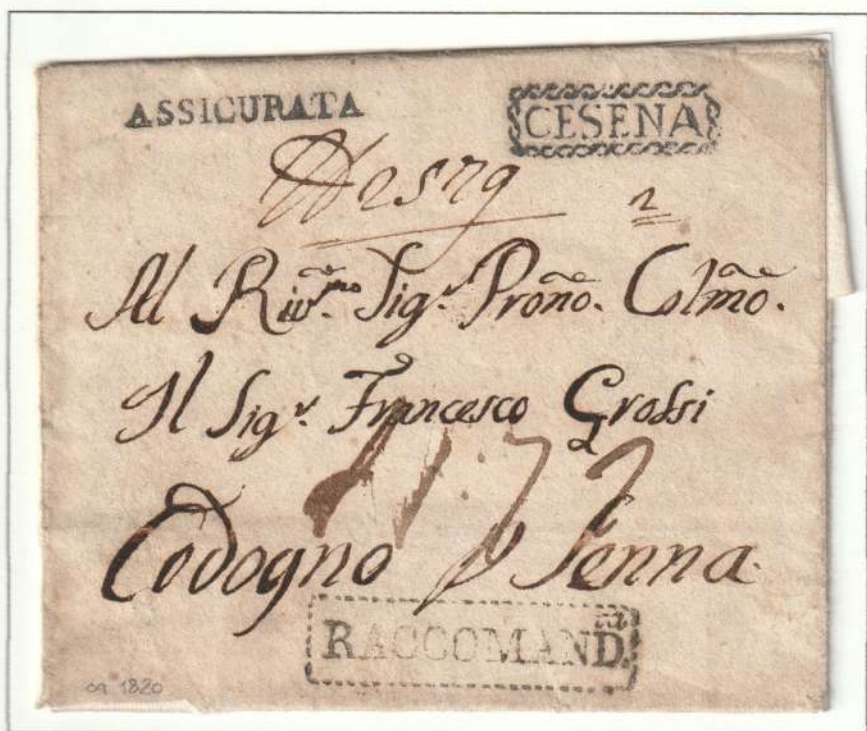 ASSICURATA
CESENA
2
Al Riv.mo Sig.r Proñ̃o. Colm̃o.
Il Sig.r Francesco Grossi
Codogno p Senna.
RACCOMAND.ta
ca 1820